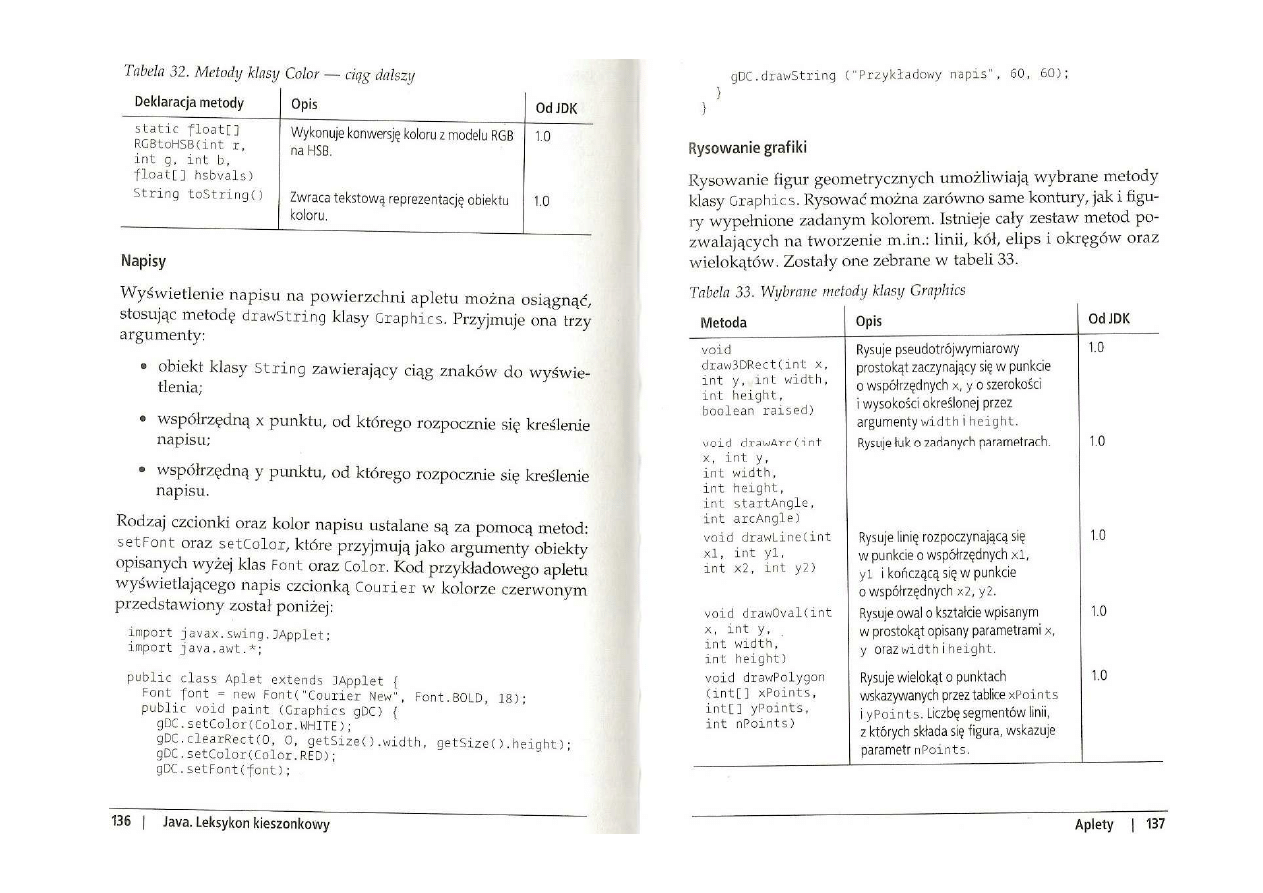 Tabela 32. Metody klasy Color — ciąg dalszy
Deklaracja metody Opis Od JDK
static float[] RGBtoHSB(int r, int g, int b, float[] hsbvals) Wykonuje konwersję koloru z modelu RGB na HSB. 1.0
String toString() Zwraca tekstową reprezentację obiektu koloru. 1.0
Napisy
Wyświetlenie napisu na powierzchni apletu można osiągnąć,
stosując metodę drawString klasy Graphics. Przyjmuje ona trzy
argumenty:
• obiekt klasy String zawierający ciąg znaków do wyświe-
tlenia;
• współrzędną x punktu, od którego rozpocznie się kreślenie
napisu;
• współrzędną y punktu, od którego rozpocznie się kreślenie
napisu.
Rodzaj czcionki oraz kolor napisu ustalane są za pomocą metod:
setFont oraz setColor, które przyjmują jako argumenty obiekty
opisanych wyżej klas Font oraz Color. Kod przykładowego apletu
wyświetlającego napis czcionką Courier w kolorze czerwonym
przedstawiony został poniżej:
import javax.swing.JApplet;
import java.awt.*;
public class Aplet extends JApplet {
Font font = new Font("Courier New", Font.BOLD, 18);
public void paint (Graphics gDC) {
gDC.setColor(Color.WHITE);
gDC.clearRect(0, 0, getSize().width, getSize().height);
gDC.setColor(Color.RED);
gDC.setFont(font);
136 | Java. Leksykon kieszonkowy
gDC.drawString ("Przykładowy napis", 60, 60);
}
}
Rysowanie grafiki
Rysowanie figur geometrycznych umożliwiają wybrane metody
klasy Graphics. Rysować można zarówno same kontury, jak i figu-
ry wypełnione zadanym kolorem. Istnieje cały zestaw metod po-
zwalających na tworzenie m.in.: linii, kół, elips i okręgów oraz
wielokątów. Zostały one zebrane w tabeli 33.
Tabela 33. Wybrane metody klasy Graphics
Metoda Opis Od JDK
void draw3DRect(int x, int y, int width, int height, boolean raised) Rysuje pseudotrójwymiarowy prostokąt zaczynający się w punkcie o współrzędnych x, y o szerokości i wysokości określonej przez argumenty width i height. 1.0
void drawArc(int x, int y, int width, int height, int startAngle, int arcAngle) Rysuje łuk o zadanych parametrach. 1.0
void drawLine(int x1, int y1, int x2, int y2) Rysuje linię rozpoczynającą się w punkcie o współrzędnych x1, y1 i kończącą się w punkcie o współrzędnych x2, y2. 1.0
void drawOval(int x, int y, int width, int height) Rysuje owal o kształcie wpisanym w prostokąt opisany parametrami x, y oraz width i height. 1.0
void drawPolygon (int[] xPoints, int[] yPoints, int nPoints) Rysuje wielokąt o punktach wskazywanych przez tablice xPoints i yPoints. Liczbę segmentów linii, z których składa się figura, wskazuje parametr nPoints. 1.0
Aplety | 137